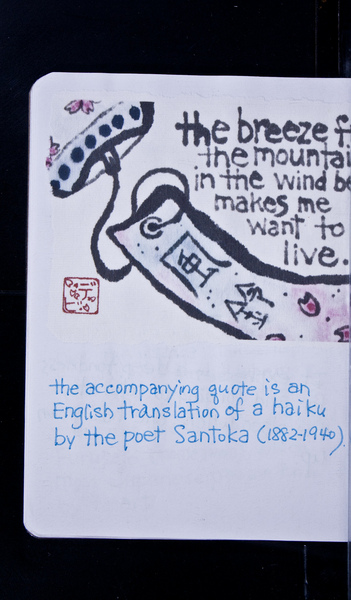 the breeze f
the mountai
in the wind be
makes me
want to
live.
the accompanying quote is an
English translation of a haiku
by the poet Santoka (1882-1940).